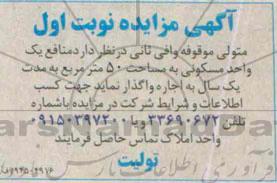 آگهی مزایده نوبت اول
متولی موقوفه وافی ثانی درنظر دارد منافع یک
واحد مسکونی به مساحت ۵۰ متر مربع به مدت
یک سال به اجاره واگذار نماید جهت کسب
اطلاعات و شرایط شرکت در مزایده باشماره
تلفن ۳۳۶۹۰۶۷۲ ویا ۰۹۱۵۰۳۹۷۲۰۰ با
واحد املاک تماس حاصل فرمایند
تولیت